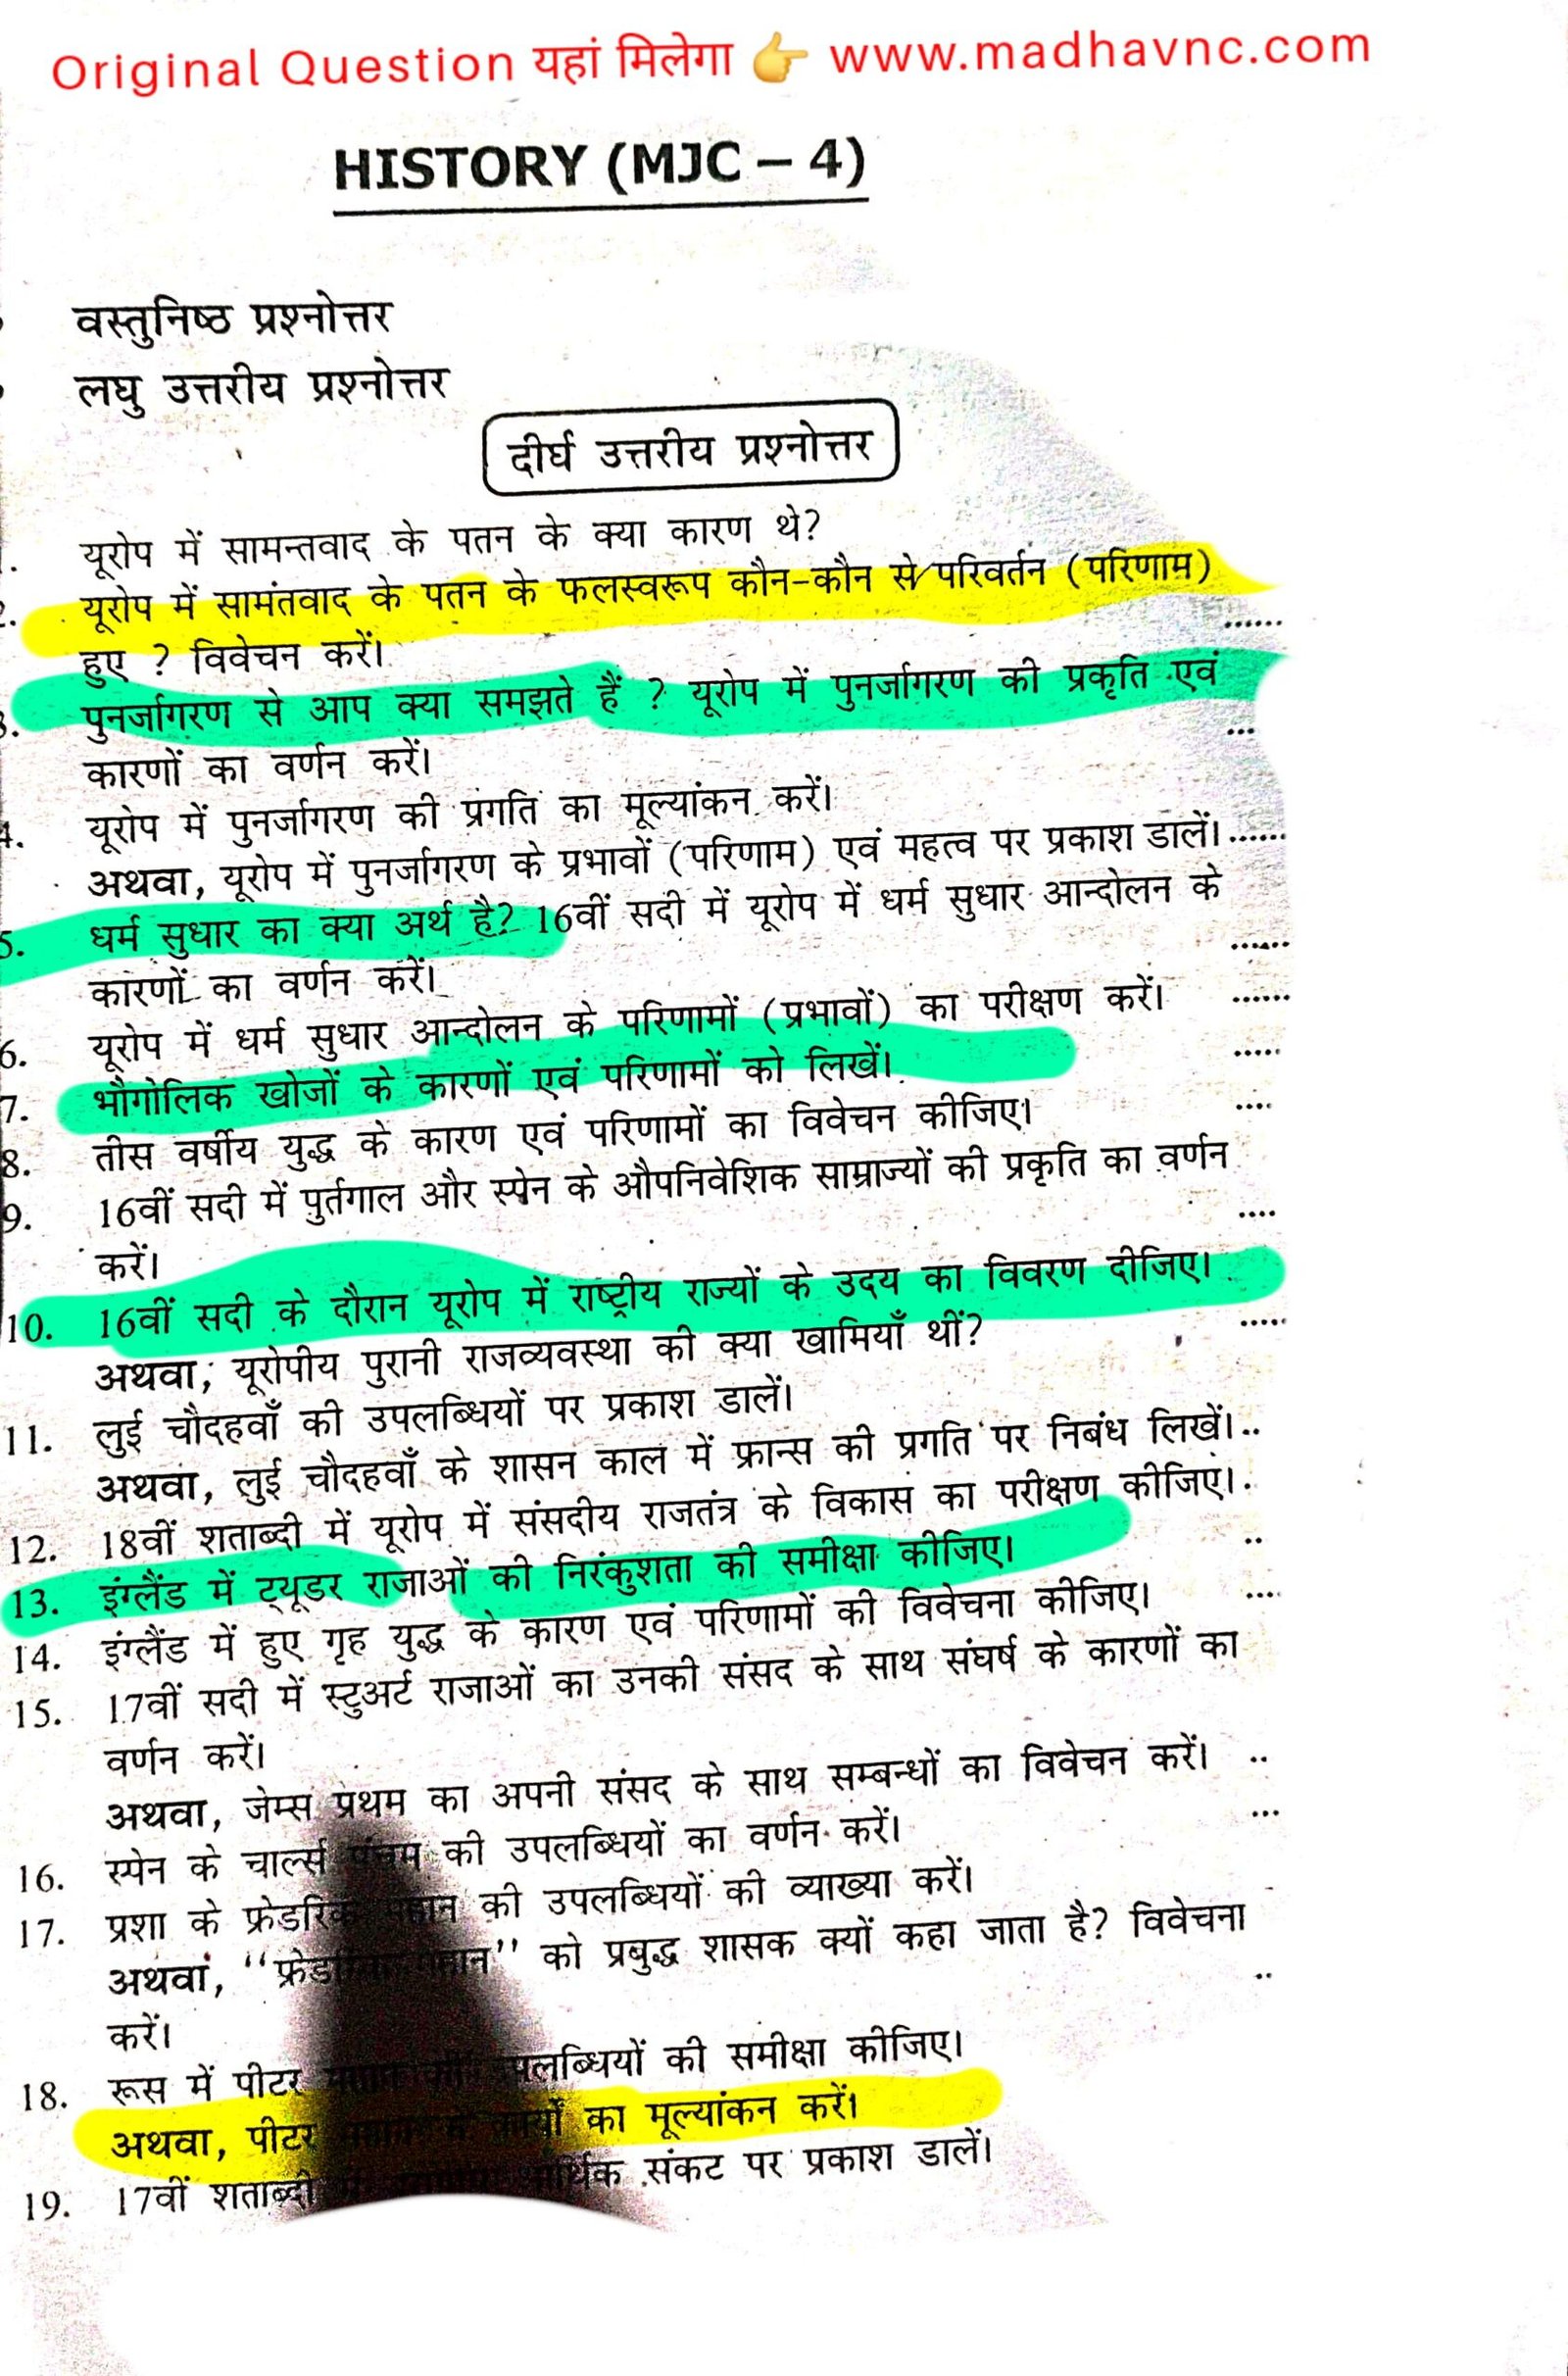 Original Question यहां मिलेगा 👉 www.madhavnc.com
HISTORY (MJC – 4)
वस्तुनिष्ठ प्रश्नोत्तर
लघु उत्तरीय प्रश्नोत्तर
दीर्घ उत्तरीय प्रश्नोत्तर
यूरोप में सामन्तवाद के पतन के क्या कारण थे?
यूरोप में सामंतवाद के पतन के फलस्वरूप कौन-कौन से परिवर्तन (परिणाम) ......
हुए ? विवेचन करें।
पुनर्जागरण से आप क्या समझते हैं ? यूरोप में पुनर्जागरण की प्रकृति एवं ...
कारणों का वर्णन करें।
4. यूरोप में पुनर्जागरण की प्रगति का मूल्यांकन करें।
अथवा, यूरोप में पुनर्जागरण के प्रभावों (परिणाम) एवं महत्व पर प्रकाश डालें।......
5. धर्म सुधार का क्या अर्थ है? 16वीं सदी में यूरोप में धर्म सुधार आन्दोलन के ......
कारणों का वर्णन करें।
6. यूरोप में धर्म सुधार आन्दोलन के परिणामों (प्रभावों) का परीक्षण करें। ......
7. भौगोलिक खोजों के कारणों एवं परिणामों को लिखें। .....
8. तीस वर्षीय युद्ध के कारण एवं परिणामों का विवेचन कीजिए। ....
9. 16वीं सदी में पुर्तगाल और स्पेन के औपनिवेशिक साम्राज्यों की प्रकृति का वर्णन ....
करें।
10. 16वीं सदी के दौरान यूरोप में राष्ट्रीय राज्यों के उदय का विवरण दीजिए। .....
अथवा, यूरोपीय पुरानी राजव्यवस्था की क्या खामियाँ थीं?
11. लुई चौदहवाँ की उपलब्धियों पर प्रकाश डालें।
अथवा, लुई चौदहवाँ के शासन काल में फ्रान्स की प्रगति पर निबंध लिखें।..
12. 18वीं शताब्दी में यूरोप में संसदीय राजतंत्र के विकास का परीक्षण कीजिए।.
13. इंग्लैंड में ट्यूडर राजाओं की निरंकुशता की समीक्षा कीजिए। ..
14. इंग्लैंड में हुए गृह युद्ध के कारण एवं परिणामों की विवेचना कीजिए। ....
15. 17वीं सदी में स्टुअर्ट राजाओं का उनकी संसद के साथ संघर्ष के कारणों का
वर्णन करें।
अथवा, जेम्स प्रथम का अपनी संसद के साथ सम्बन्धों का विवेचन करें। ..
16. स्पेन के चार्ल्स पंचम की उपलब्धियों का वर्णन करें। ...
17. प्रशा के फ्रेडरिक महान की उपलब्धियों की व्याख्या करें।
अथवा, "फ्रेडरिक महान" को प्रबुद्ध शासक क्यों कहा जाता है? विवेचना ..
करें।
18. रूस में पीटर उपलब्धियों की समीक्षा कीजिए।
अथवा, पीटर कार्यों का मूल्यांकन करें।
19. 17वीं शताब्दी आर्थिक संकट पर प्रकाश डालें।